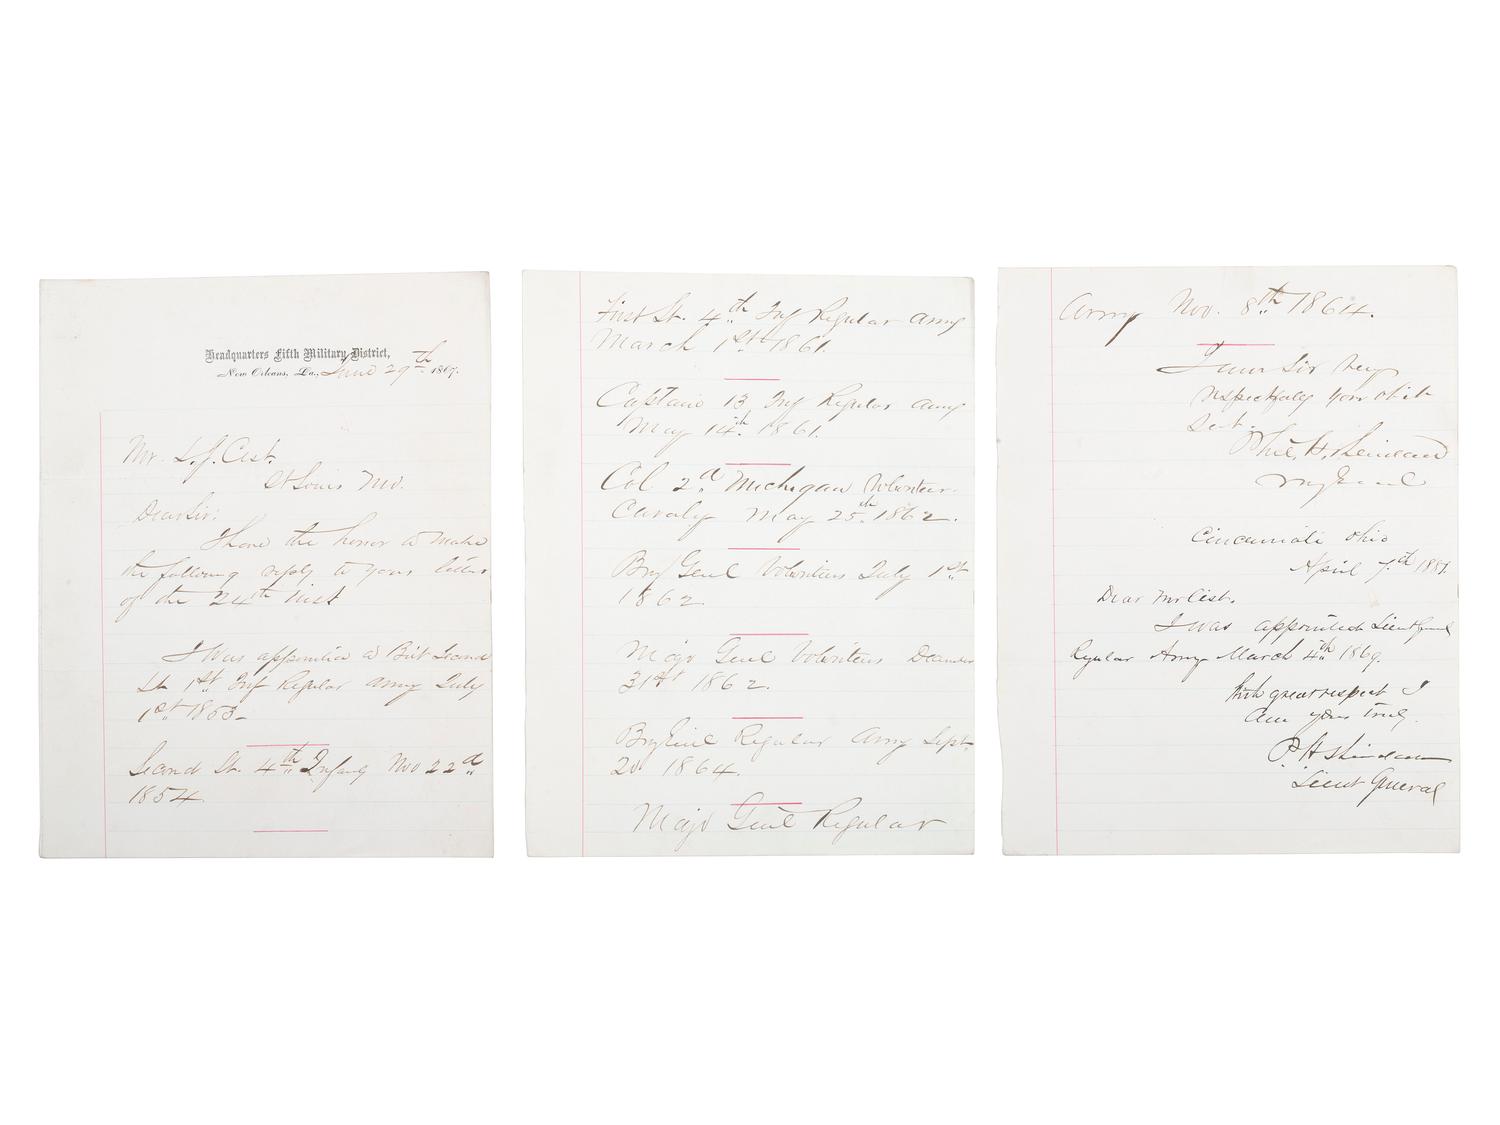 Headquarters Fifth Military District,
New Orleans, La., June 29th 1867.
Mr. L. J. Cist.
St Louis Mo.
Dear Sir:
I have the honor to make
the following reply to your letter
of the 24th inst
I was appointed a Bvt Second
Lt 1st Inf Regular Army July
1st 1853-
Second Lt. 4th Infany Nov 22d
1854
First Lt. 4th Inf Regular Army
March 1st 1861.
Captain 13 Inf Regular Army
May 14th 1861.
Col 2d Michigan Volunteer
Cavaly May 25th 1862.
Brig Genl Volunteers July 1st
1862
Major Genl Volunteers December
31st 1862.
Brig Genl Regular Army Sept
20 1864.
Major Genl Regular
Army Nov. 8th 1864.
I am Sir very
respectfully your obdt
Sevt.
Phil. H. Sheridan
Maj Genl
Cincinnati Ohio
April 7th
Dear Mr Cist.
I was appointed Lieut Genl
Regular Army March 4th 1869.
With great respect I
am yours truly.
P. H. Sheridan
Lieut General